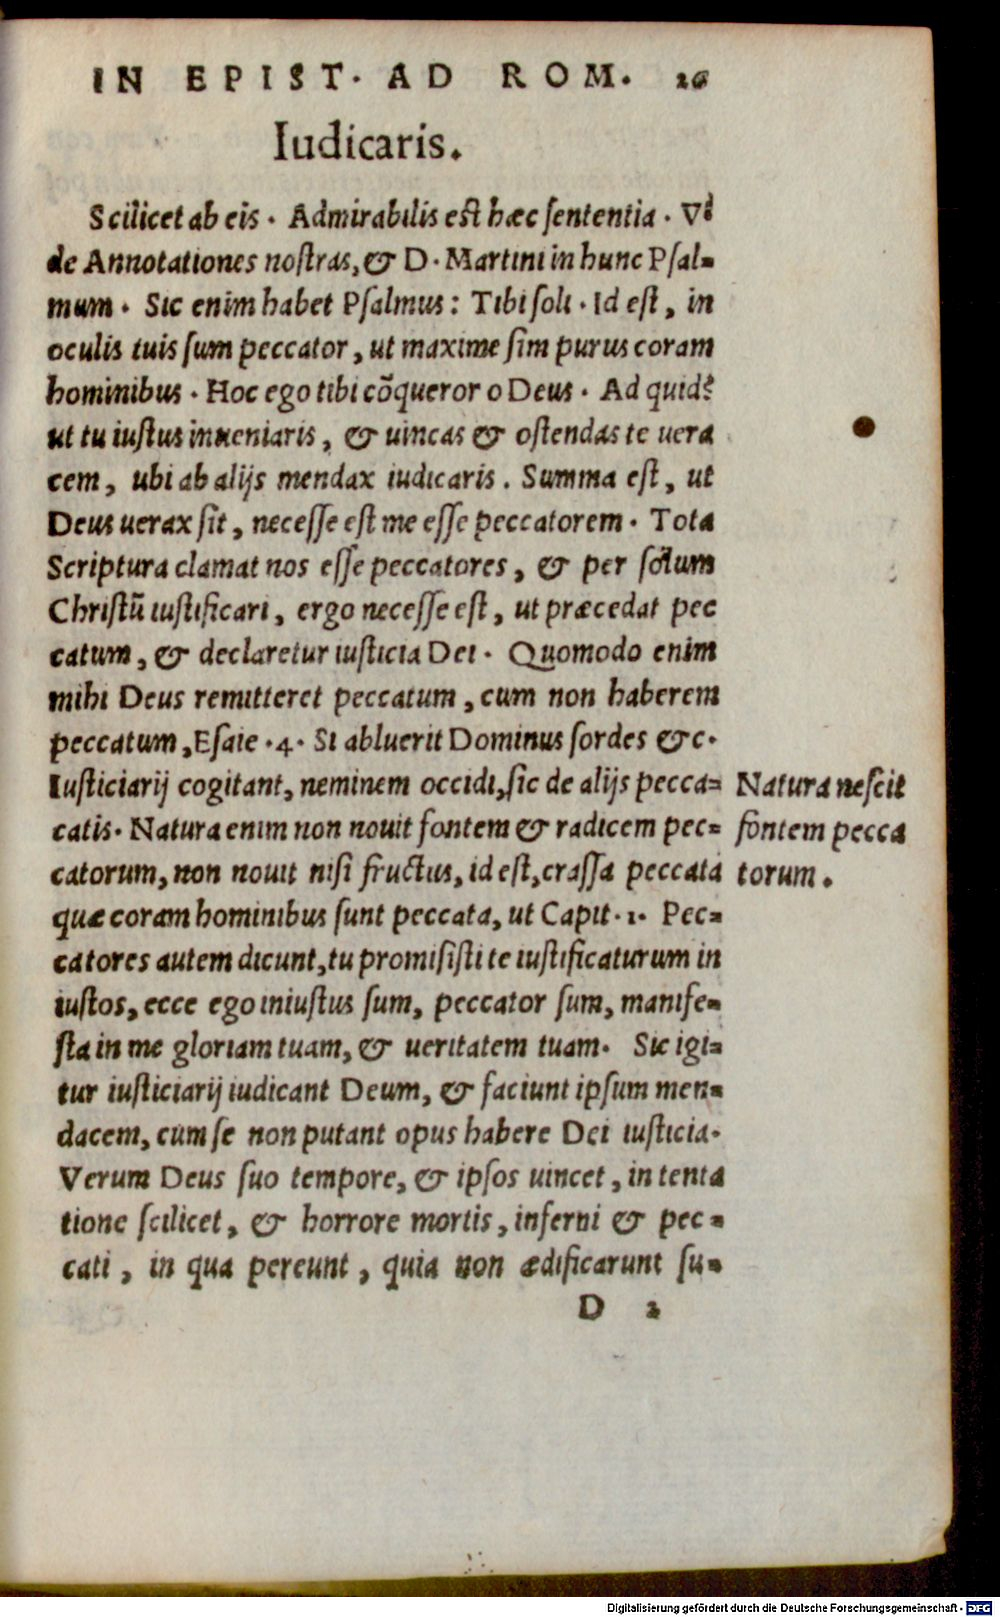 IN EPIST. AD ROM. 26
Iudicaris.
Scilicet ab eis. Admirabilis est hæc sententia. Vi
de Annotationes nostras, & D. Martini in hunc Psal=
mum. Sic enim habet Psalmus: Tibi soli. Id est, in
oculis tuis sum peccator, ut maxime sim purus coram
hominibus. Hoc ego tibi cõqueror o Deus. Ad quid?
ut tu iustus inueniaris, & uincas & ostendas te uera
cem, ubi ab alijs mendax iudicaris. Summa est, ut
Deus uerax sit, necesse est me esse peccatorem. Tota
Scriptura clamat nos esse peccatores, & per solum
Christũ iustificari, ergo necesse est, ut præcedat pec
catum, & declaretur iusticia Dei. Quomodo enim
mihi Deus remitteret peccatum, cum non haberem
peccatum, Esaie .4. Si abluerit Dominus sordes &c.
Iusticiarij cogitant, neminem occidi, sic de alijs pecca=
catis. Natura enim non nouit fontem & radicem pec=
catorum, non nouit nisi fructus, id est, crassa peccata
quæ coram hominibus sunt peccata, ut Capit. 1. Pec=
catores autem dicunt, tu promisisti te iustificaturum in
iustos, ecce ego iniustus sum, peccator sum, manife=
sta in me gloriam tuam, & ueritatem tuam. Sic igi=
tur iusticiarij iudicant Deum, & faciunt ipsum men=
dacem, cum se non putant opus habere Dei iusticia.
Verum Deus suo tempore, & ipsos uincet, in tenta
tione scilicet, & horrore mortis, inferni & pec=
cati, in qua pereunt, quia non ædificarunt su=
D 2
Natura nescit
fontem pecca
torum.
Digitalisierung gefördert durch die Deutsche Forschungsgemeinschaft - DFG